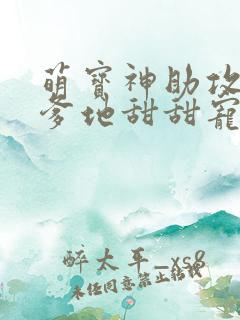 萌寶神助攻
爹地甜甜寵
醉太平_xs8
未经同意禁止转载